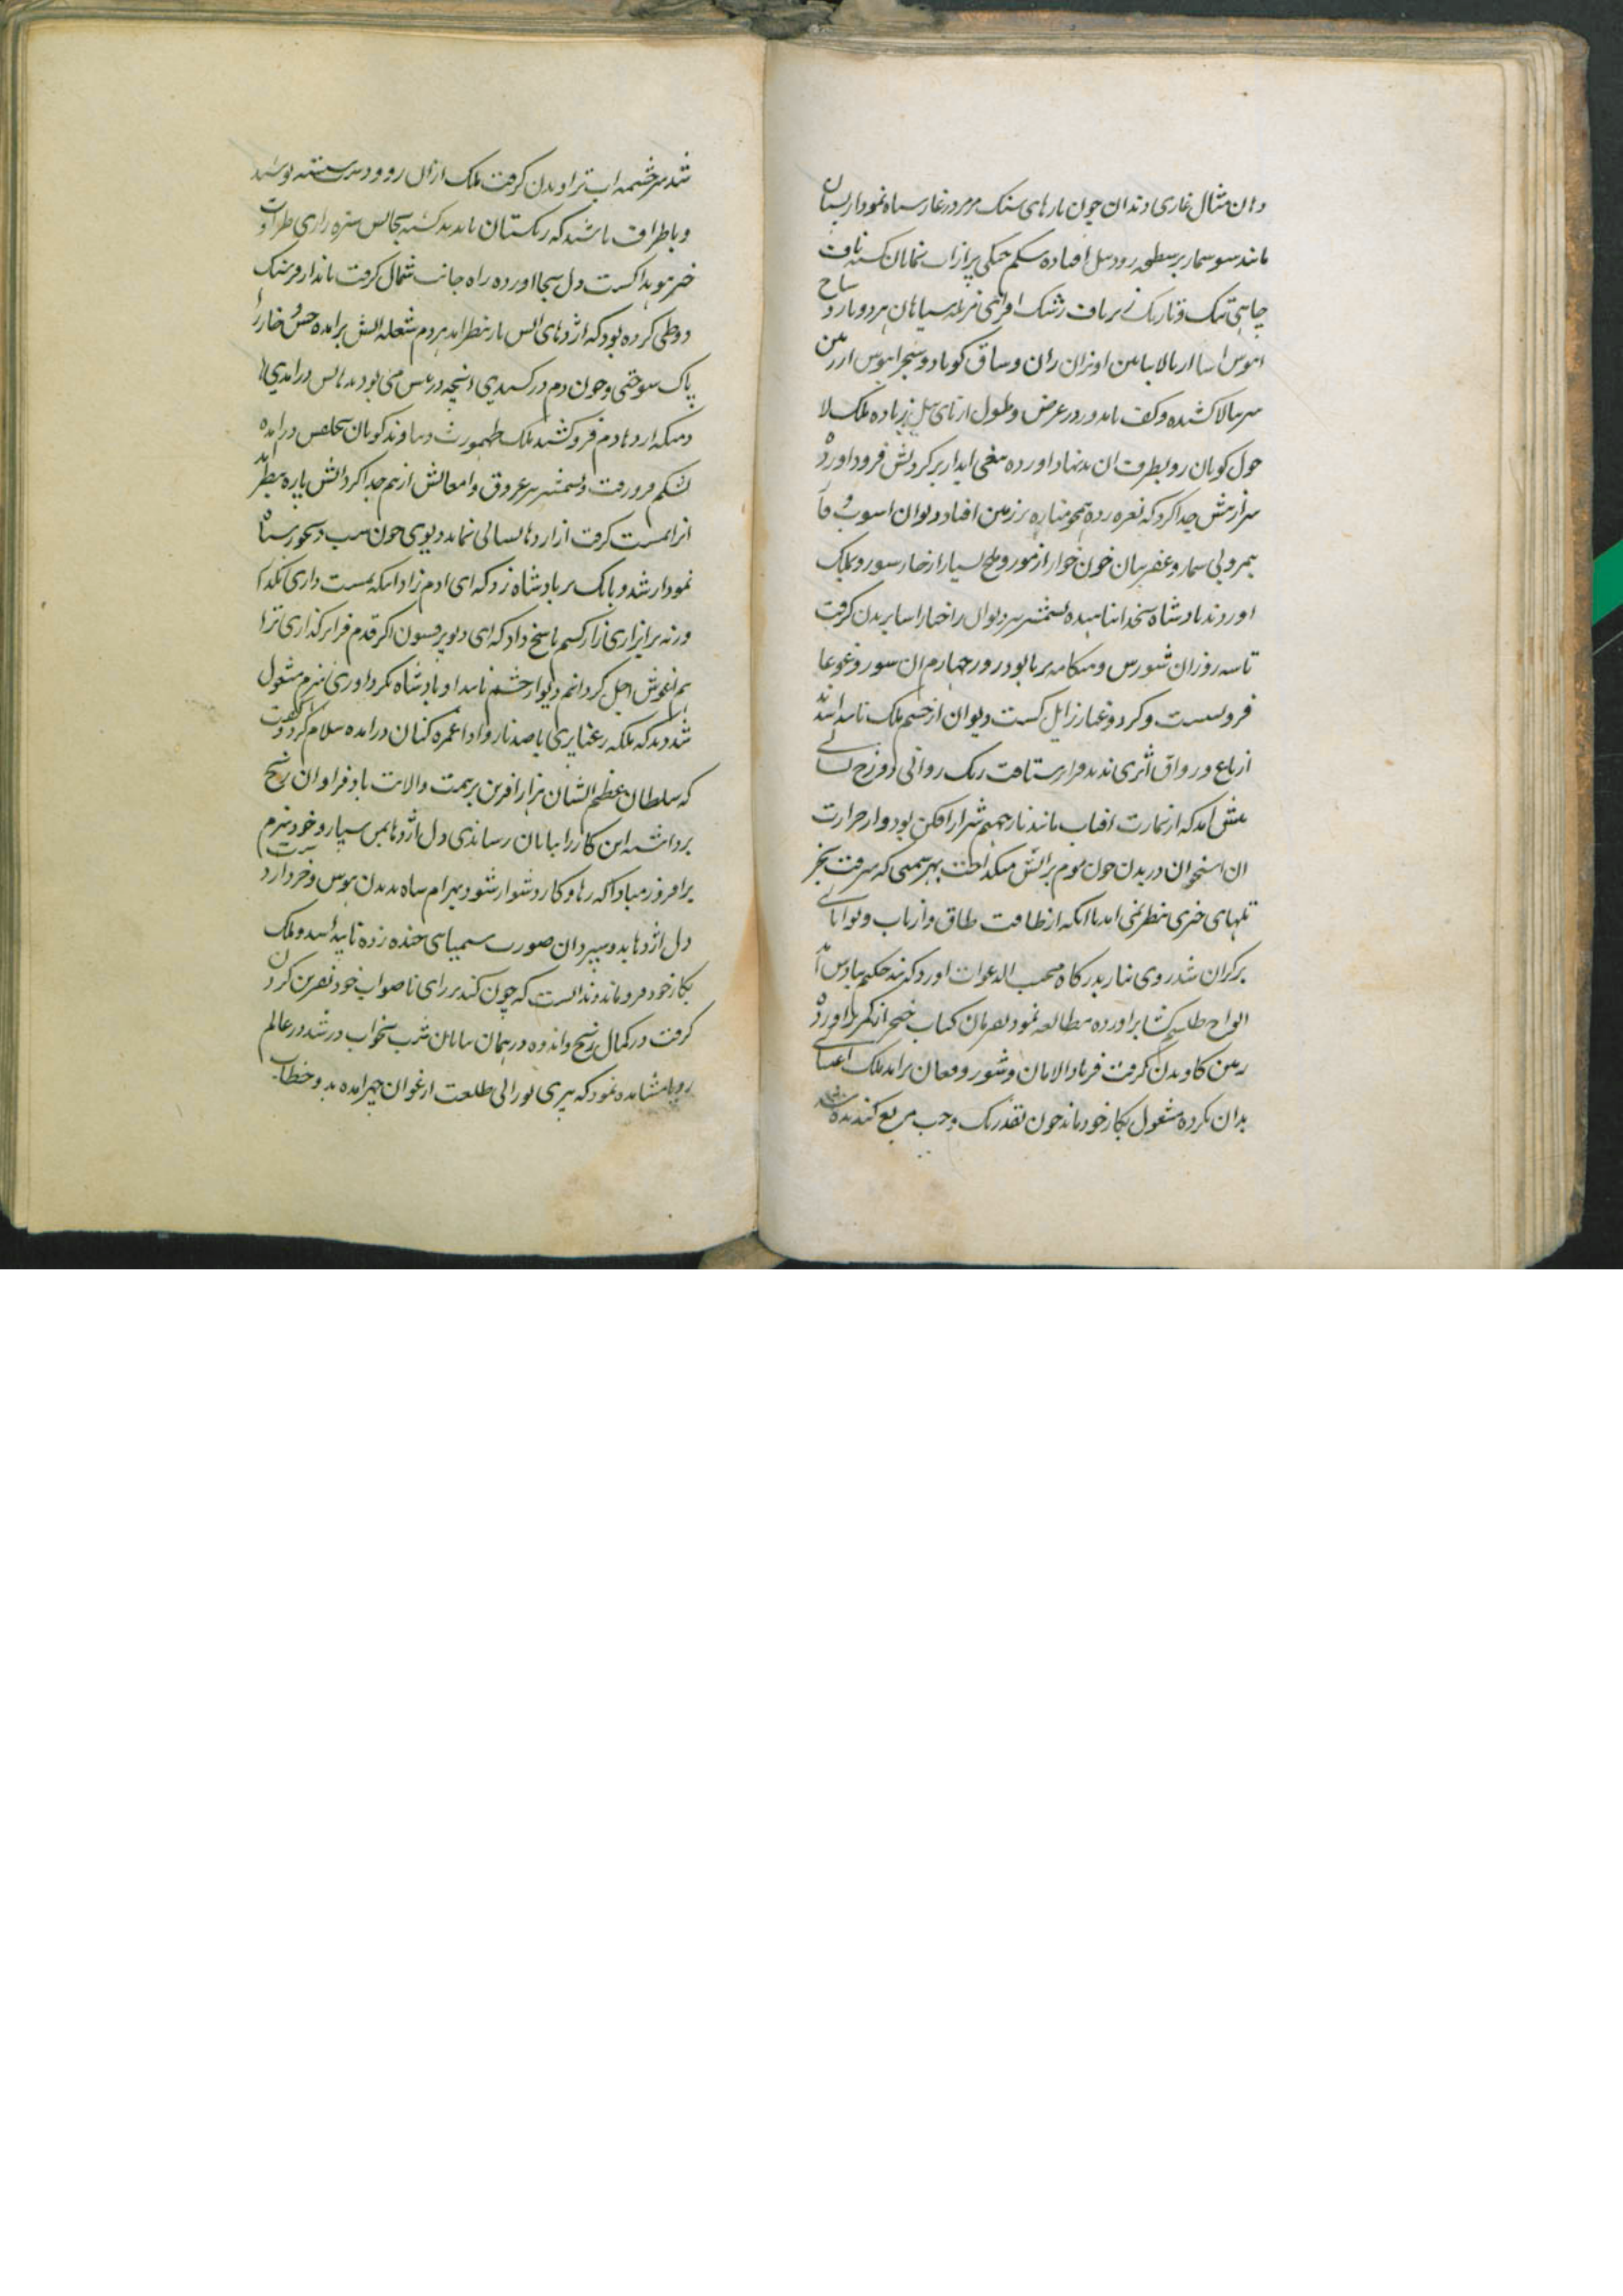 دان مثال غاری دندان چون پارهای سنک مرمر در غار سیاه نمودار پستان
مانند سوسمار بر سطحه رود نیل افتاده شکم خیکی پر از اب نمایان کشته ناف
چاهی تنک و تاریک زیر ناف رشک افزای مزبله سیاهان هر دو بازو شاخ
ابنوس اسا از بالا بپایین اویزان ران و ساق کویا دو شجر ابنوس از زمین
سر ببالا کشیده و کف پا مدور در عرض و طول از پای پیل زیاده ملک لا
حول کویان رو بطرف ان بدنهاد اورده تیغی ابدار بر کردنش فرود اورده
سر از تنش جدا کرد که نعره زده همچو مناره بر زمین افتاد دیوان اسوب و فا
بیمر و بی شمار و عفریتان خون خوار از مور و ملخ بسیار از خار سور و بملک
اوردند پادشاه بخدا پناهیده بشمشیر سر دیوان را خیار اسا بریدن کرفت
تا سه روز ان شورش و هنکامه بر پا بود روز چهارم ان شور و غوغا
فرو نشست و کرد و غبار زایل کشت دیوان از چشم ملک ناپدید شدند
از باغ و رواق اثری ندید و از مسافت ریک روانی دوزخ نشانی
پیش امد که از تمازت افتاب مانند نار جهنم شرار افکن بود و از حرارت
ان استخوان در بدن چون موم بر اتش میکداخت بهر سمتی که میرفت بجز
تلهای خیری بنظر نمی امد با انکه از طاقت طاق و از تاب و توانایی
بر کران شد روی نیاز بدرکاه مجیب الدعوات اورد که پند حکیم بیادش امد
الواح طلسم کشا براورده مطالعه نمود بفرمان کتاب خنجر از کمر براورده
زمین کاویدن کرفت فریاد الامان و شور و فغان برامد ملک اعتنای
بدان نکرده مشغول بکار خود ماند چون بقدر یک وجب مربع کنده شد
شد سرچشمه اب تراویدن کرفت ملک از ان رو و دست شسته نوشید
و باطراف پاشید که ریکستان ناپدید کشته بجایش سبزه زاری طراوت
خیز هویدا کشت دل بجا اورده راه جانب شمال کرفت باندازه فرسنک
دو طی کرده بود که اژدهای اتش بار بنظر امد هر دم شعله اتش برامده خس و خار را
پاک سوختی و چون دم درکشیدی انچه در پیش می بود بدهانش درامدی تا
دمیکه اژدها دم فروکشید ملک طهمورث دماوند کویان بحلقش درامده
بشکم فرو رفت و بشمشیر سر عروق و امعایش از هم جدا کرد اتش پاره بنظر امد
انرا بمشت کرفت از اژدها نشانی نماند دیوی چون شب دیجور سیاه
نمودار شد و بانک بر پادشاه زد که ای ادم زاد انکه بمشت داری بکذار
ورنه برایزاری زار کشم پاسخ داد که ای دیو پر فسون اکر قدم فراتر کذاری ترا
هم اغوش اجل کردانم دیو از چشم ناپیدا و پادشاه بکرد اوری هیزم مشغول
شد دید که ملکه رعنا پری با صد ناز و ادا غمزه کنان درامده سلام کرد و کفت
که سلطان عظیم الشان هزار افرین بر همت والایت باد فراوان رنج
برداشته این کار را بپایان رساندی دل اژدها بمن بسپار و خود هیزم
برافروز مبادا که رها و کار دشوار شود بهرام شاه بدیدن هوش و خرد از دست
دل اژدها بدو سپرد ان صورت سیمیایی خنده زده ناپیدا شد و ملک
بکار خود فرو ماند و ندانست که چون کند بر رای ناصواب خود نفرین کردن
کرفت در کمال رنج و اندوه در همان بیابان شب بخواب در شد در عالم
رویا مشاهده نمود که پیری نورانی طلعت ارغوان چهر امده بدو خطاب